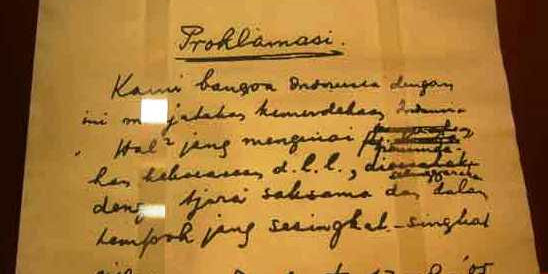 Proklamasi.
Kami bangsa Indonesia dengan
ini menjatakan kemerdekaan Indonesia.
Hal² jang mengenai
kekoeasaan d.l.l., diselenggarakan
dengan tjara saksama dan dalam
tempoh jang sesingkat-singkat
'05